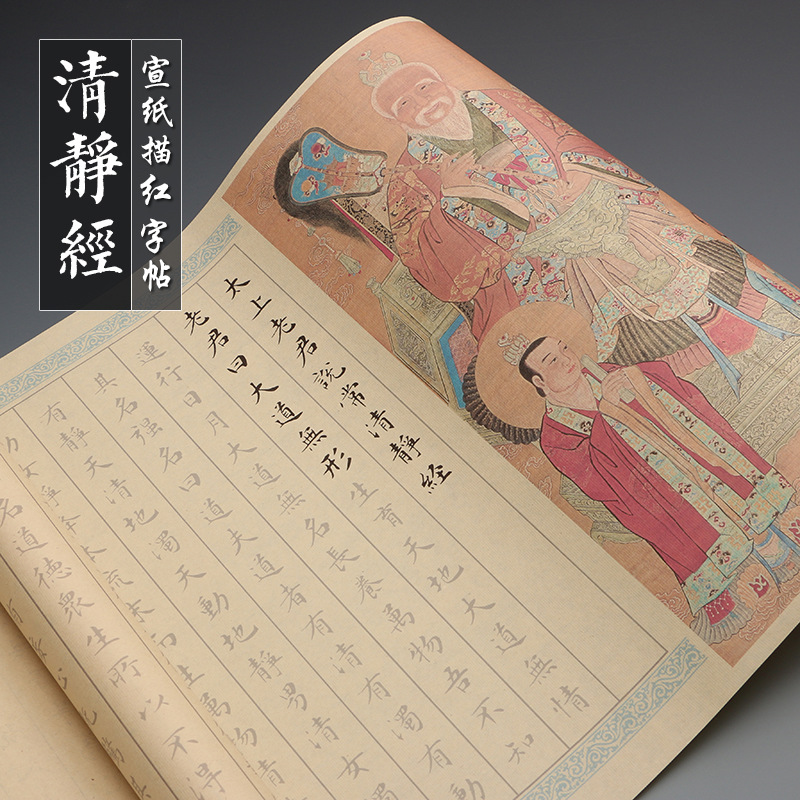 清靜經
宣纸描红字帖
太上老君說常清靜經
老君曰大道無形生育天地大道無情
運行日月大道無名長養萬物吾不知
其名强名曰道夫道者有清有濁有動
有靜天清地濁天動地靜男清女濁
女靜本流末而生萬物清
名道德衆生所以不得